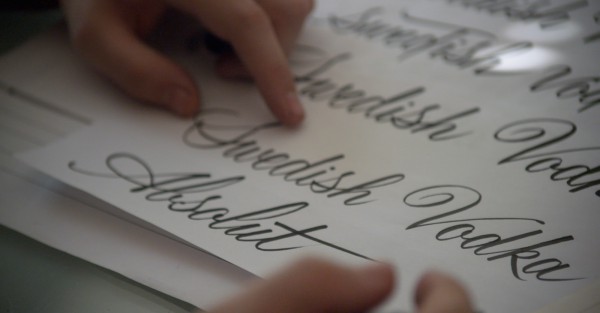 Swedish
Swedish Vod
Swedish Vodk
Swedish Vodka
Absolut